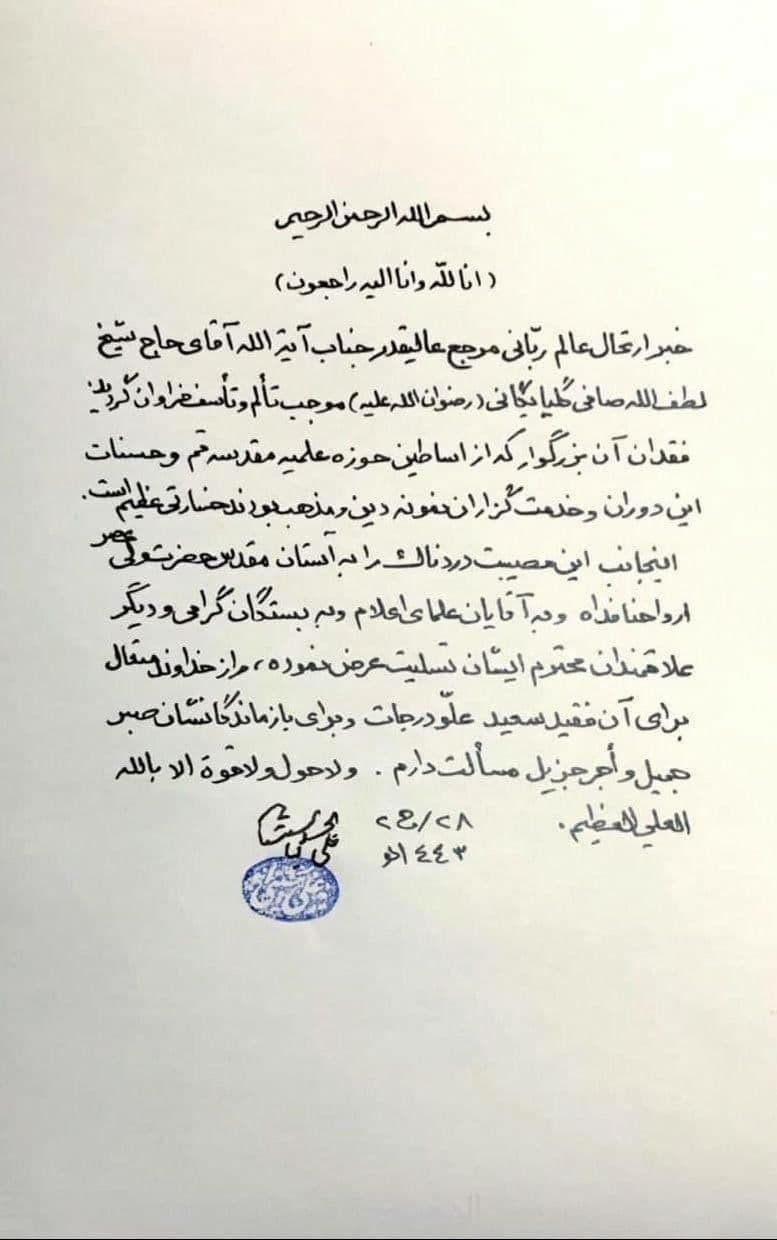 بسم الله الرحمن الرحیم
(انا للّه وانا الیه راجعون)
خبر ارتحال عالم ربّانی مرجع عالیقدر جناب آیة الله آقای حاج شیخ
لطف الله صافی گلپایگانی (رضوان الله علیه) موجب تألم وتأسف فراوان گردید
فقدان آن بزرگوار که از اساطین حوزه علمیه مقدسه قم و حسنات
این دوران و خدمت گزاران نمونه دین ومذهب بودند خسارتی عظیم است.
اینجانب این مصیبت دردناک را به آستان مقدس حضرت ولی عصر
ارواحنا فداه وبه آقایان علمای اعلام وبه بستگان گرامی و دیگر
علاقمندان محترم ایشان تسلیت عرض نموده، واز خداوند متعال
برای آن فقید سعید علوّ درجات وبرای بازماندگانشان صبر
جمیل و أجر جزیل مسألت دارم . ولا حول ولا قوة الا بالله
العلي العظيم. ٢٨/ج٢
١٤٤٣هـ
علی الحسینی السیستانی